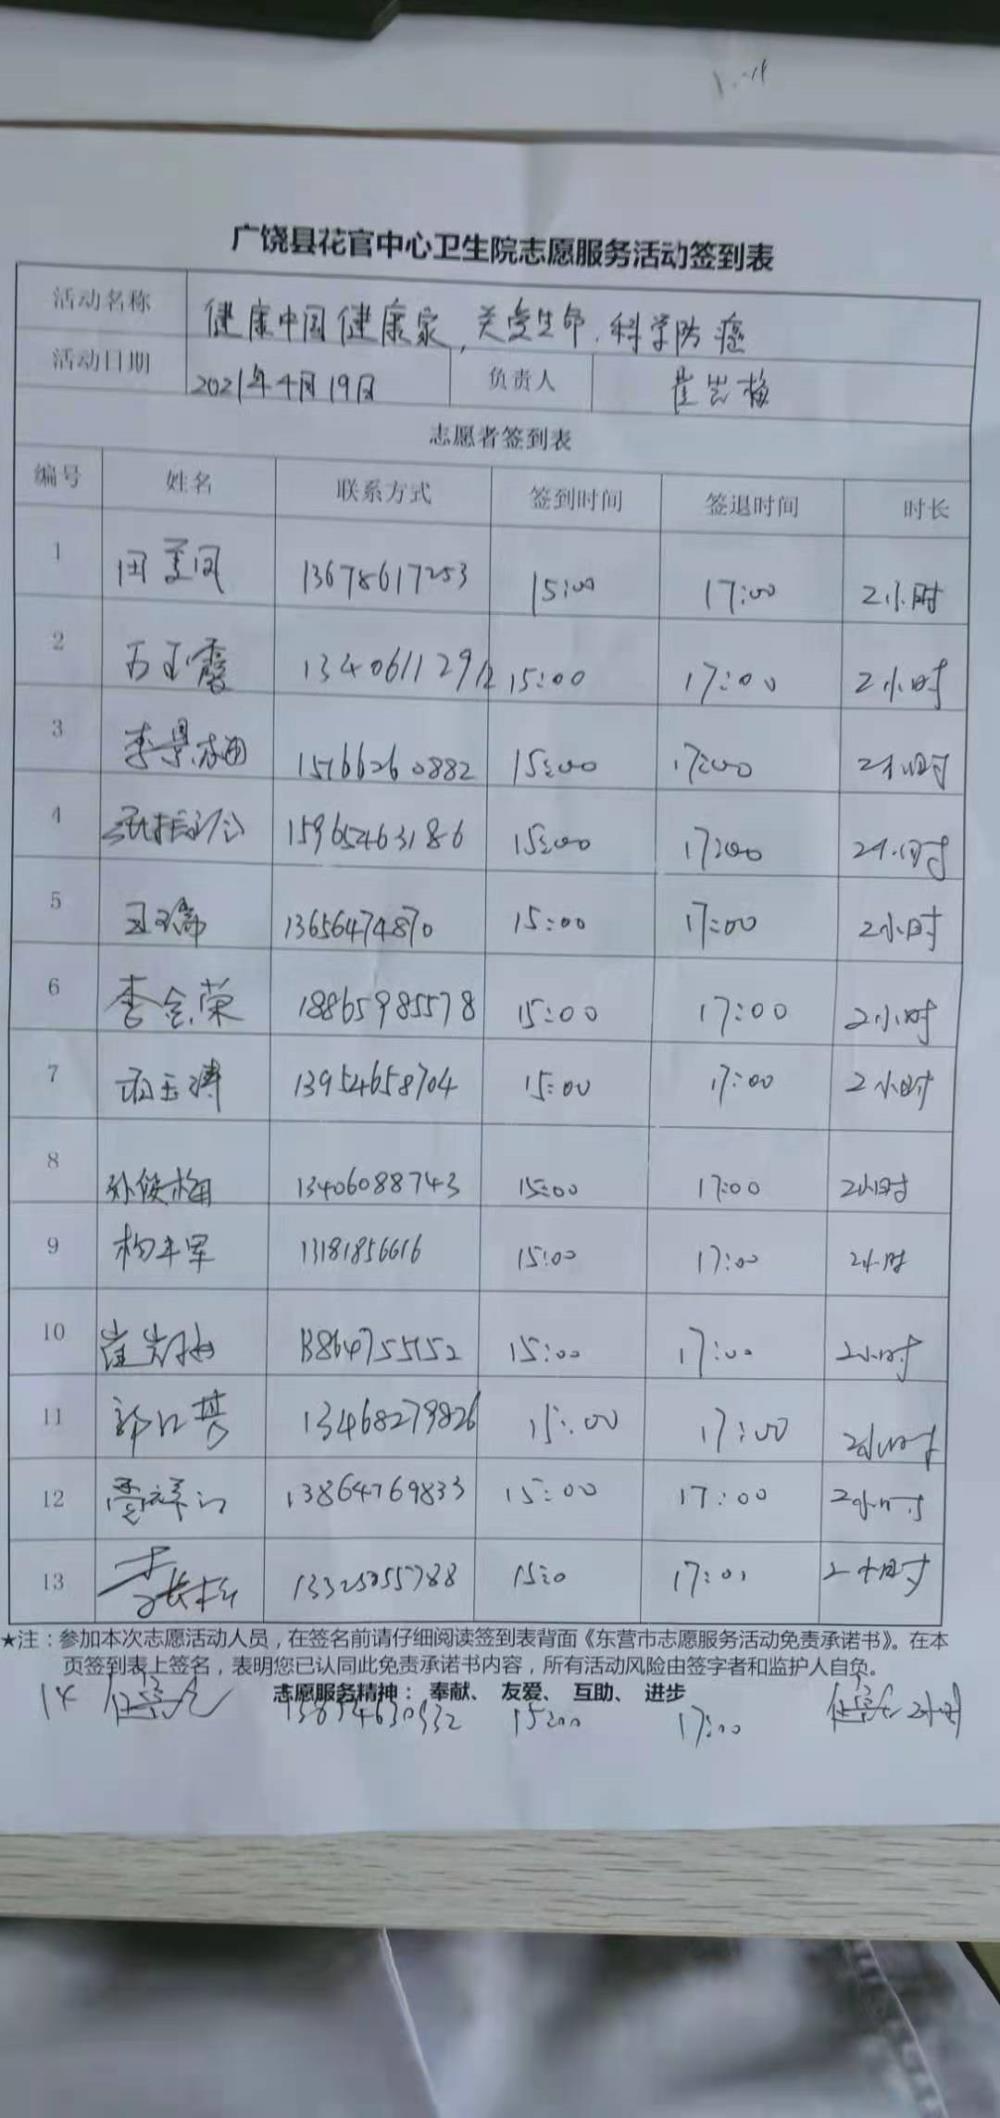 广饶县花官中心卫生院志愿服务活动签到表
活动名称 健康中国健康家,关爱生命.科学防癌
活动日期 2021年4月19日 负责人 崔岩梅
志愿者签到表
编号 姓名 联系方式 签到时间 签退时间 时长
1 田美凤 13678617253 15:00 17:00 2小时
2 玉霞 13406112912 15:00 17:00 2小时
3 李景梅 15766260882 15:00 17:00 2小时
4 15965463186 15:00 17:00 2小时
5 13656474870 15:00 17:00 2小时
6 李会荣 18865985578 15:00 17:00 2小时
7 玉涛 13954658704 15:00 17:00 2小时
8 孙俊梅 13406088743 15:00 17:00 2小时
9 杨军 13181856616 15:00 17:00 2小时
10 崔岩梅 13864755152 15:00 17:00 2小时
11 13468279826 15:00 17:00 2小时
12 13864769833 15:00 17:00 2小时
13 李长松 15:0 17:0 2小时
★注:参加本次志愿活动人员,在签名前请仔细阅读签到表背面《东营市志愿服务活动免责承诺书》。在本
页签到表上签名,表明您已认同此免责承诺书内容,所有活动风险由签字者和监护人自负。
志愿服务精神: 奉献、 友爱、 互助、 进步
14 15:00 17:00 2小时